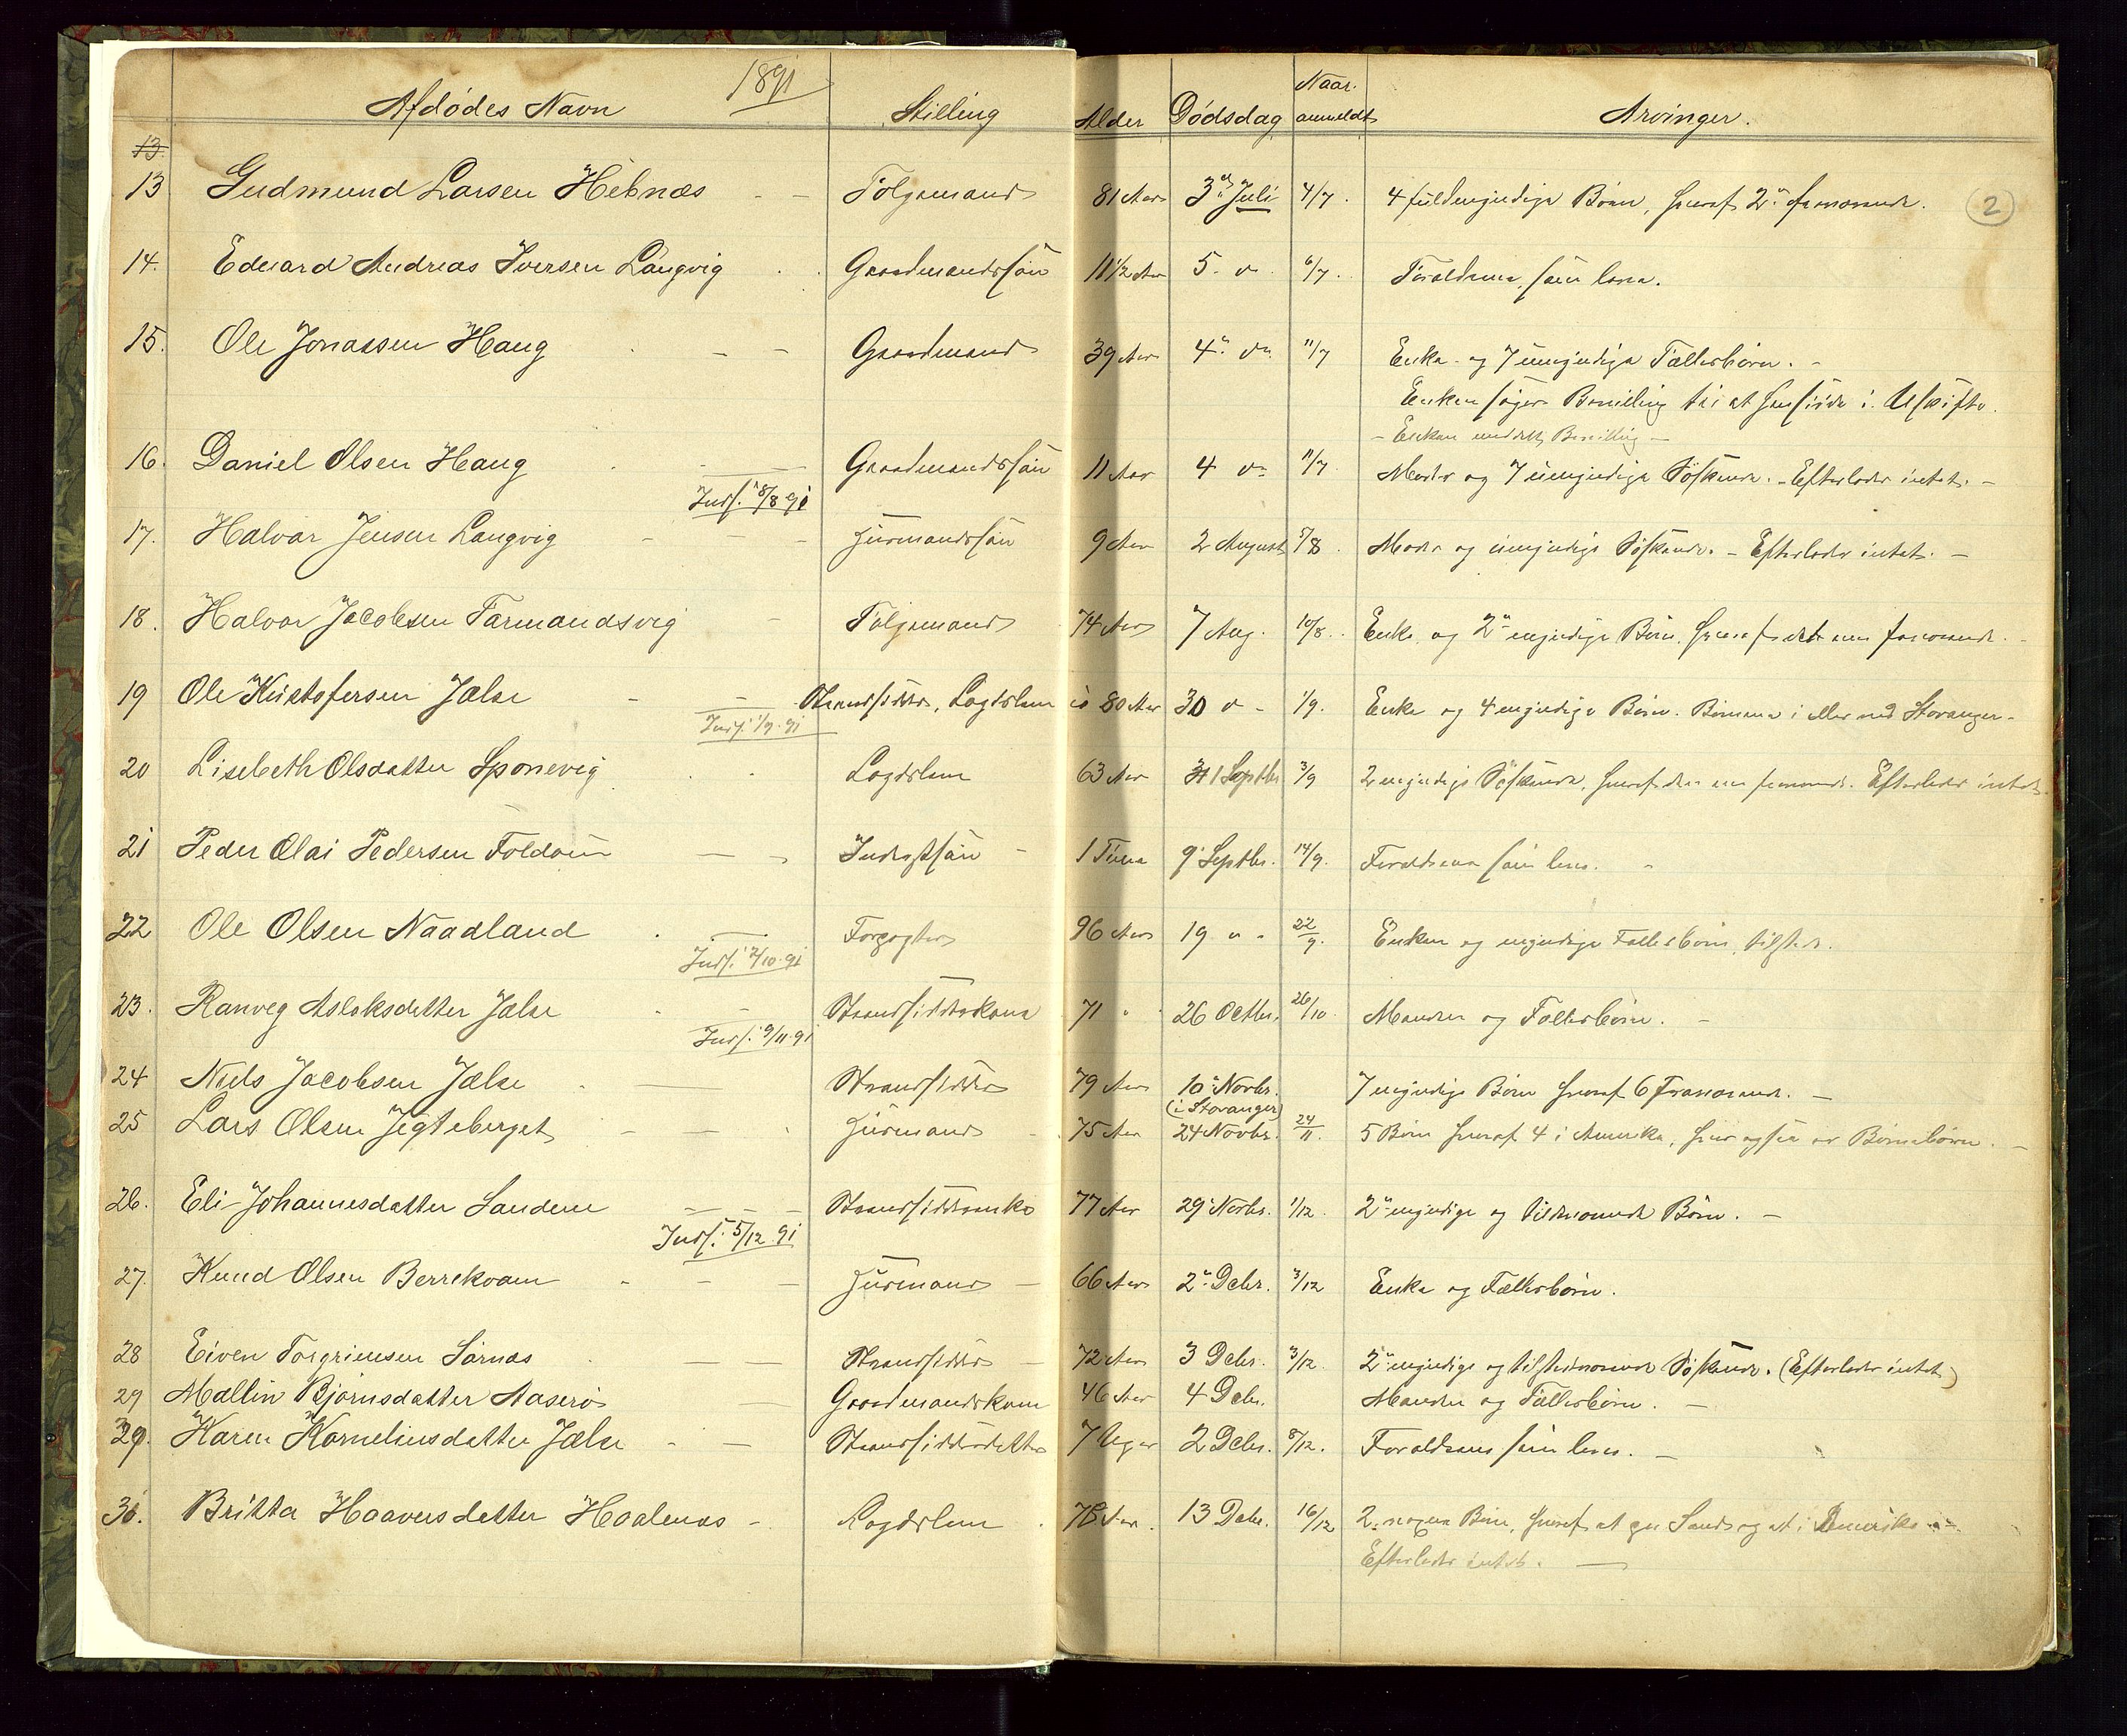 1891
Afdødes Navn Stilling Alder Dødsdag Naar anmeldt Arvinger.
13
13 Gudmund Larsen Hebnæs - - Følgemand 81 Aar 3die Juli 4/7. 4 fuldmyndige Børn, hvoraf 2 fraværende.
2
14. Edvard Andreas Iversen Langvig Gaardmandssøn 11½ Aar 5. do 6/7. Forældrene, som leve.
15. Ole Jonassen Haug - - Gaardmand 39 Aar 4. do 11/7 Enke og 7 umyndige Fællesbørn. -
Enken søger Bevilling til at hensidde i Uskifte.
- Enken meddelt Bevilling -
16. Daniel Olsen Haug Gaardmandssøn 11 Aar 4 do 11/7 Moder og 7 umyndige Søskende. - Efterlader intet. -
Inds. 8/8 91
17. Halvar Jensen Langvig - - - Husmandssøn 9 Aar 2 August 5/8. Moder og umyndige Søskende. - Efterlader intet. -
18. Halvor Jacobsen Farmandsvig - Følgemand 74 Aar 7 Aug. 10/8. Enke og 2 myndige Børn, hvoraf det ene fraværende.
19 Ole Kristofersen Jælse - - Strandsidder, Lægdslem 80 Aar 30 do - 1/9. Enke og 4 myndige Børn. Børnene i eller ved Stavanger.
Inds. 1/9 91
20 Lisebeth Olsdatter Sponevig Lægdslem 63 Aar 1 Septbr 3/9 2 myndige Søskende, hvoraf den ene fraværende. Efterlader intet.
21 Peder Olai Pedersen Foldøen - Inderstsøn - 1 Time 9 Septbr. 14/9. Forældrene som leve. -
22 Ole Olsen Naadland Forsørget 96 Aar 19 " - 22/9. Enken og myndige Fællesbørn, tilstede.
Inds. 2/10 91
23. Ranveg Aslaksdatter Jælse - Strandsidderkone 71 " 26 Octbr. 26/10 Manden og Fællesbørn. -
Inds. 9/11 91
24 Niels Jacobsen Jælse Strandsidder 79 Aar 10 Novbr. 7 myndige Børn hvoraf 6 fraværende. -
(i Stavanger)
25 Lars Olsen Jegteberget - - Husmand 75 Aar 24 Novbr. 24/11. 5 Børn hvoraf 4 i Amerika, hvor ogsaa er Børnebørn. -
26. Eli Johannesdatter Sandene - - - Strandsidderenke 77 Aar 29 Novbr. 1/12. 2 myndige og tilstedeværende Børn. -
Inds. 5/12 91
27. Knud Olsen Berrekvam - - - Husmand - 66 Aar 2 Debr. 3/12 Enke og Fællesbørn.
28 Eiven Torgriemsen Sarnæs - - Strandsidder - 72 Aar 3 Debr. 3/12. 2 myndige og tilstedeværende Søskende. (Efterlader intet)
29 Mallin Bjørnsdatter Aaserø - Gaardmandskone 46 Aar 4 Debr. Manden og Fællesbørn. -
29. Karen Korneliusdatter Jælse - - Strandsidderdatter 7 Uger 2 Debr. 8/12. Forældrene som leve. -
30. Britta Haaversdatter Haalenæs - Lægdslem 78 Aar. 13 Debr. 16/12 2 voxne Børn, hvoraf et paa Sand og et i Amerika -
Efterlader intet. -